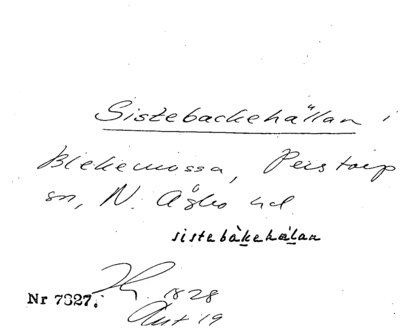 Sistebackehällan i
Blekemossa, Perstorp
sn, N. Åsbo hd
sistebàkehälan
Nr 7827. 1828